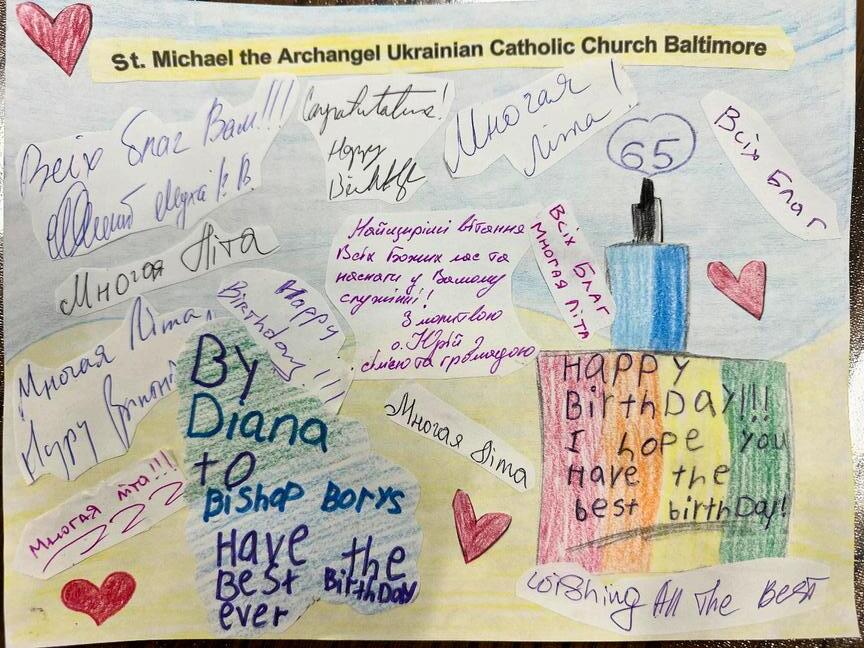 St. Michael the Archangel Ukrainian Catholic Church Baltimore
Всіх благ Вам!!!
Congratulations!
Happy
Многая
літа!
65
Всіх благ
Многая літа
Найщиріші вітання
Всіх Божих лас та
наснаги у Вашому
служінні!
З молитвою
о. Юрій з
сім'єю та громадою
Всіх благ
Многая літа
Happy
Birthday!!!
Многая літа
Многая літа
Многая літа!!!
By
Diana
to
Bishop Borys
Have the
Best Birthday
ever
Happy
BirthDay!!!
I hope you
Have the
best birthDay!
Wishing All The Best